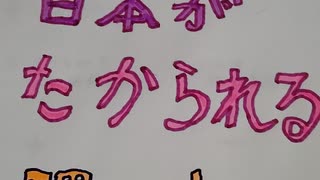 日本が
たかられる